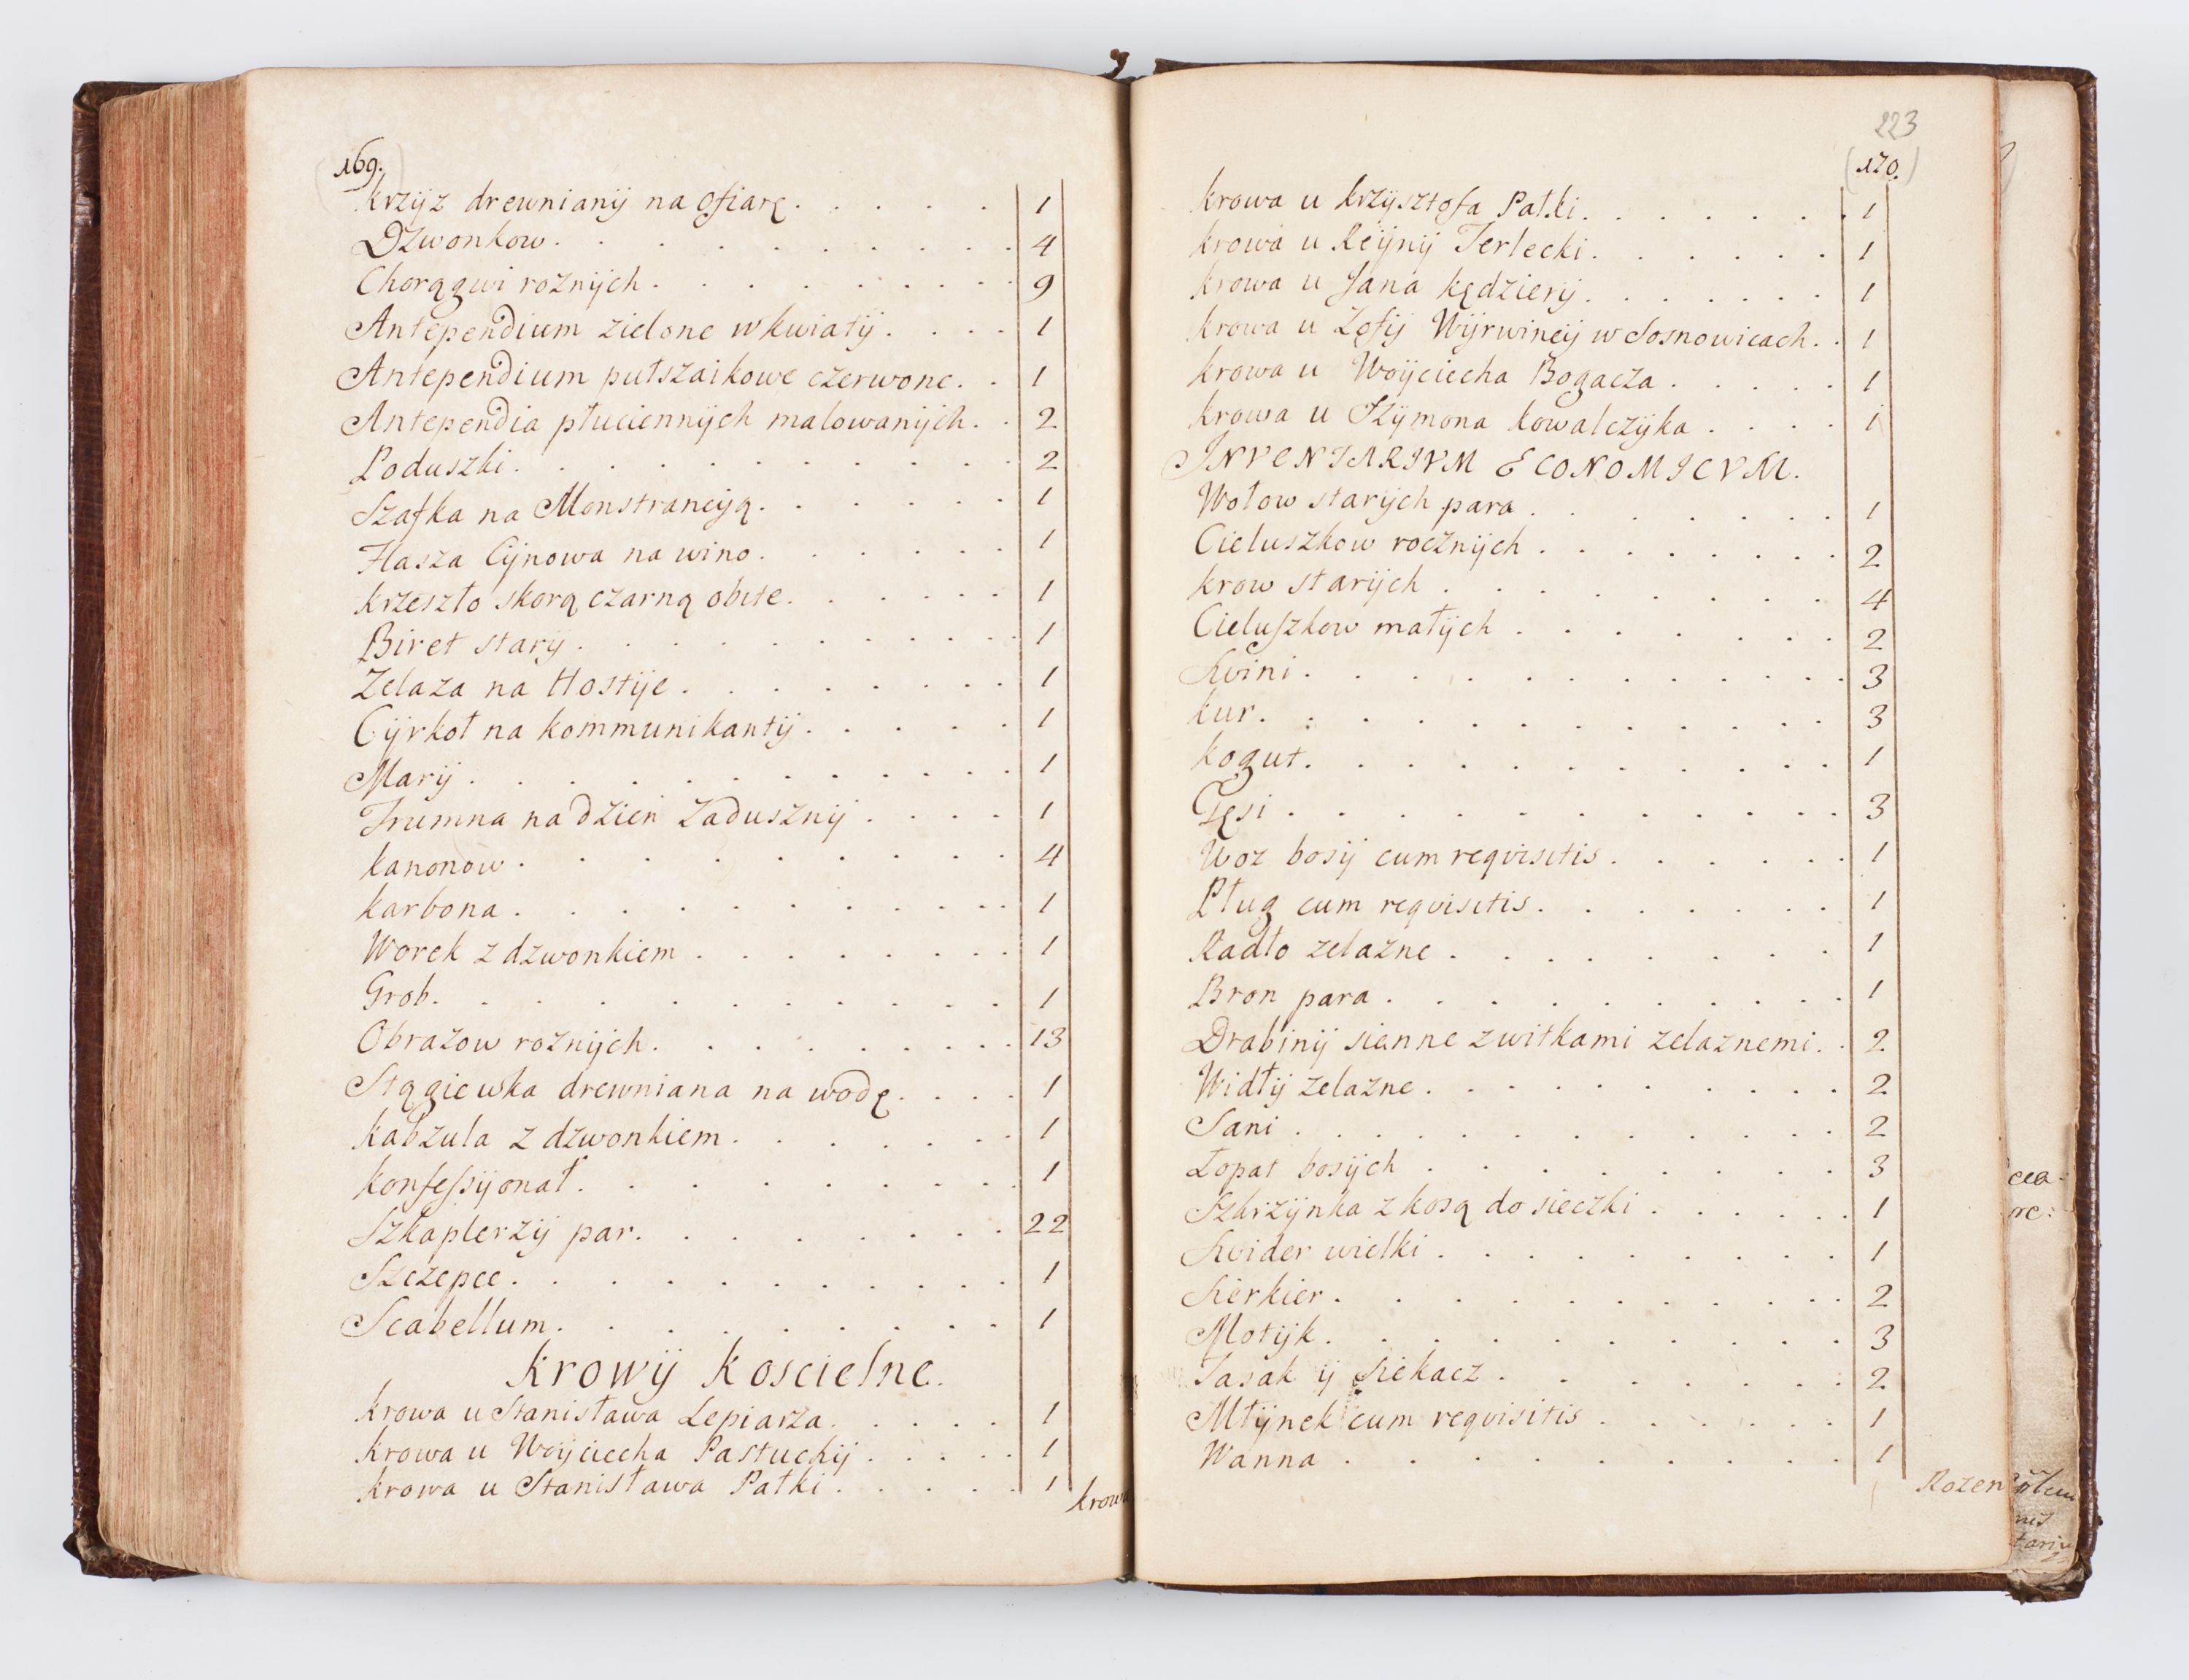 169.
krzijz drewnianij na ofiarę. 1
Dzwonkow. 4
Chorągwi roznijch. 9
Antependium zielone w kwiatij. 1
Antependium pułszaikowe czerwone. 1
Antependia płuciennijch malowanijch. 2
Poduszki. 2
Szafka na Monstranciją. 1
Flasza Cijnowa na wino. 1
krzeszło skorą czarną obite. 1
Biret starij. 1
Zelaza na Hostije. 1
Cijrkoł na kommunikantij. 1
Marij. 1
Trumna na dzień Zadusznij. 1
kanonow. 4
karbona. 1
Worek z dzwonkiem. 1
Grob. 1
Obrazow roznijch. 13
Stągiewka drewniana na wodę. 1
kabzula z dzwonkiem. 1
konfeſsijonał. 1
Szkaplerzij par. 22
Szczepce. 1
Scabellum. 1
krowij koscielne.
krowa u Stanisława Lepiarza. 1
krowa u Woijciecha Pastuchij. 1
krowa u Stanisława Pałki. 1
krowa
223
(170.)
krowa u krzijsztofa Pałki. 1
krowa u Reijnij Terlecki. 1
krowa u Jana kędzierij. 1
krowa u Zofij Wijrwineij w Sosnowicach. 1
krowa u Woijciecha Bogacza. 1
krowa u Szijmona kowalczijka. 1
INVENTARIVM ECONOMICVM.
Wołow starijch para. 1
Cieluszkow rocznijch. 2
krow starijch. 4
Cieluſzkow małijch. 2
Swini. 3
kur. 3
kogut. 1
Gęsi. 3
Woz bosij cum reqvisitis. 1
Pług cum reqvisitis. 1
Radło zelazne. 1
Bron para. 1
Drabinij sienne z witkami zelaznemi. 2
Widłij zelazne. 2
Sani. 2
Łopat bosijch. 3
Szkrzijnka z kosą do sieczki. 1
Swider wielki. 1
Sierkier. 2
Motijk. 3
Tasak ij siekacz. 2
Młijnek cum reqvisitis. 1
Wanna. 1
Rozen